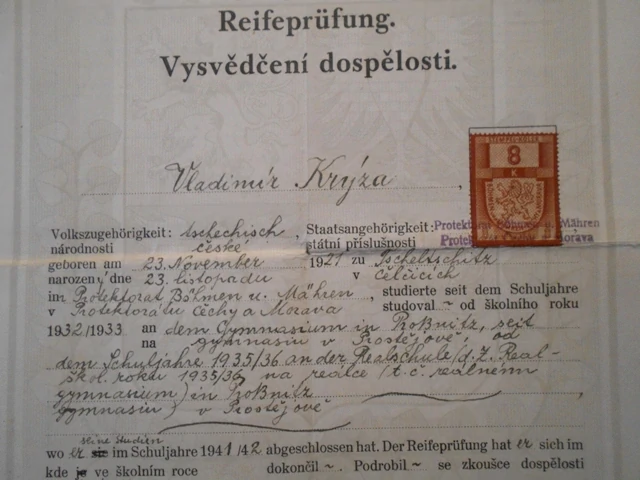 Reifeprüfung.
Vysvědčení dospělosti.
8
K
Vladimír Krýža,
Volkszugehörigkeit: tschechisch, Staatsangehörigkeit: Protektorat Böhmen u. Mähren
národnosti české státní příslušnosti Morava
geboren am 23. November 1921 zu Tscheltschitz
narozený dne 23. listopadu v Čelčicích
im Protektorat Böhmen u. Mähren, studierte seit dem Schuljahre
v Protektorátu Čechy a Morava studoval ~ od školního roku
1932/1933 an dem Gymnasium in Proßnitz, seit
na gymnasiu v Prostějově, od
dem Schuljahre 1935/36 an der Realschule (d. Z. Real-
škol. roku 1935/36 na reálce (t. č. reálném
gymnasium) in Proßnitz
gymnasiu) v Prostějově
seine Studien
wo er sie im Schuljahre 1941/42 abgeschlossen hat. Der Reifeprüfung hat er sich im
kde je ve školním roce dokončil ~. Podrobil ~ se zkoušce dospělosti